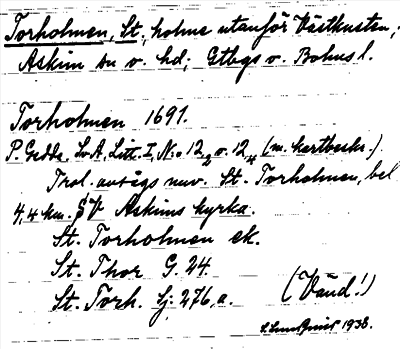 Torholmen, St., holme utanför Västkusten,
Askim sn o. hd; Gtbgs o. Bohus l.
Torholmen 1691.
P. Gedda. Lv. A. Litt. I, N:o 12 o. 12 (m. kartbeskr.)
Trol. avsågs nuv. St. Torholmen, bel
4,4 km. SV Askims kyrka.
St. Torholmen ek.
St. Thor G. 24.
St. Torh. Lj. 276, a. (Vänd!)
1938.